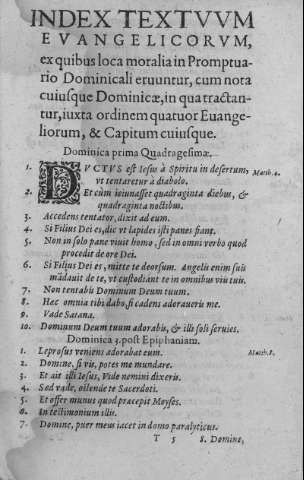 INDEX TEXTVVM
EVANGELICORVM,
ex quibus loca moralia in Promptua-
rio Dominicali eruuntur, cum nota
cuiusque Dominicæ, in qua tractan-
tur, iuxta ordinem quatuor Euange-
liorum, & Capitum cuiusque.
Dominica prima Quadragesimæ.
1. DVCTVS est Iesus à Spiritu in desertum, Matth. 4.
vt tentaretur à diabolo.
2. Et cùm ieiunasset quadraginta diebus, &
quadraginta noctibus.
3. Accedens tentator, dixit ad eum.
4. Si Filius Dei es, dic vt lapides isti panes fiant.
5. Non in solo pane viuit homo, sed in omni verbo quod
procedit de ore Dei.
6. Si Filius Dei es, mitte te deorsum. Angelis enim suis
mādauit de te, vt custodiant te in omnibus viis tuis.
7. Non tentabis Dominum Deum tuum.
8. Hæc omnia tibi dabo, si cadens adoraueris me.
9. Vade Satana.
10. Dominum Deum tuum adorabis, & illi soli seruies.
Dominica 3. post Epiphaniam.
1. Leprosus veniens adorabat eum. Matth. 8.
2. Domine, si vis, potes me mundare.
3. Et ait illi Iesus, Vide nemini dixeris.
4. Sed vade, ostende te Sacerdoti.
5. Et offer munus quod præcepit Moyses.
6. In testimonium illis.
7. Domine, puer meus iacet in domo paralyticus.
T 5 8. Domine,